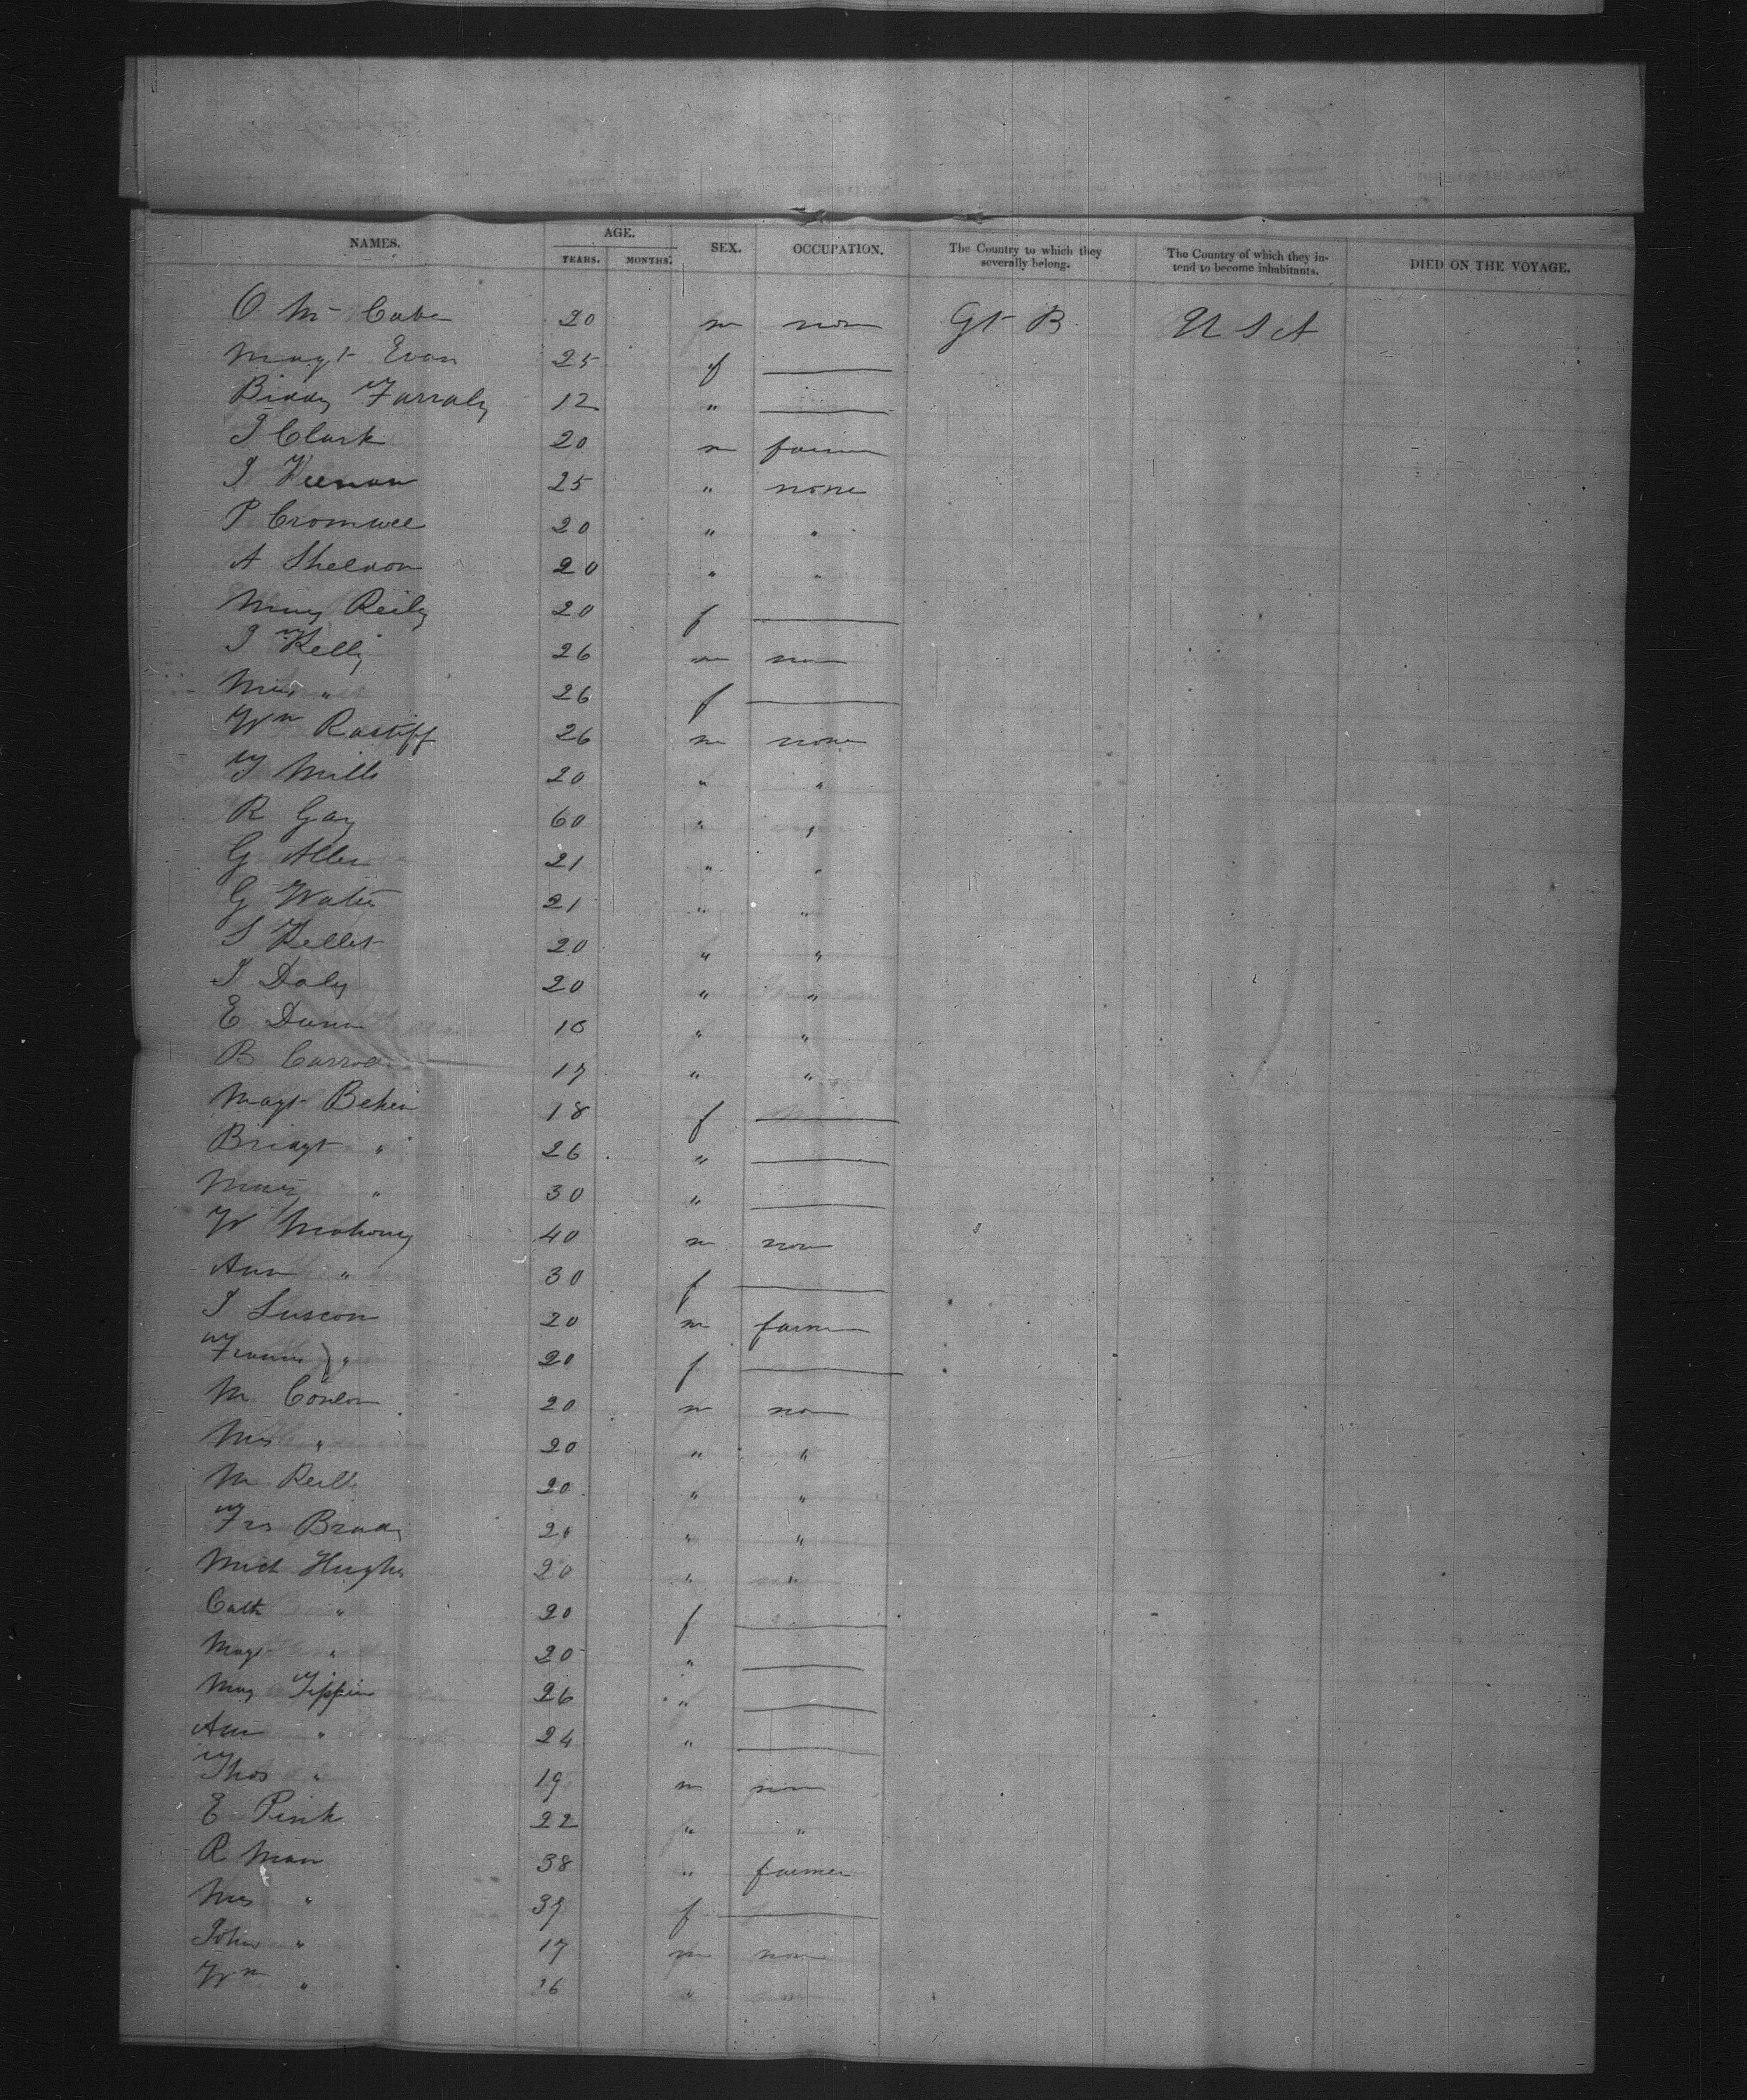 NAMES. AGE. SEX. OCCUPATION. The Country to which they severally belong. The Country of which they intend to become inhabitants. DIED ON THE VOYAGE.
YEARS. MONTHS.
O Mc Cabe 20 m non Gt B U S A
Magt Evan 25 f ———
Biddy Farraly 12 " ———
J Clark 20 m farmer
J Keenan 25 " none
P Cromwell 20 " "
A Sheldon 20 " "
Mary Reily 20 f ———
J Kelly 26 m non
Mrs " 26 f ———
Wm Rastiff 26 m none
T Mills 20 " "
R Gay 60 " "
G Allen 21 " "
G Water 21 " "
S Kellet 20 " "
J Daly 20 " "
E Dunn 18 " "
B Carroll 17 " "
Magt Behen 18 f ———
Bridgt " 26 " ———
Mary " 30 " ———
W Mahony 40 m non
Ann " 30 f ———
J Luscon 20 m farmer
Francis } " 20 f ———
M Conlon 20 m non
Mrs " 20 " "
M Reill 20 " "
Frs Brady 20 " "
Mich Hughs 20 " "
Cath " 20 f ———
Magt " 20 " ———
May Tippin 26 " ———
Ann " 24 " ———
Thos " 19 m non
E Pink 22 " "
R Man 38 " farmer
Mrs " 37 f ———
John " 17 m non
Wm " 26 " "